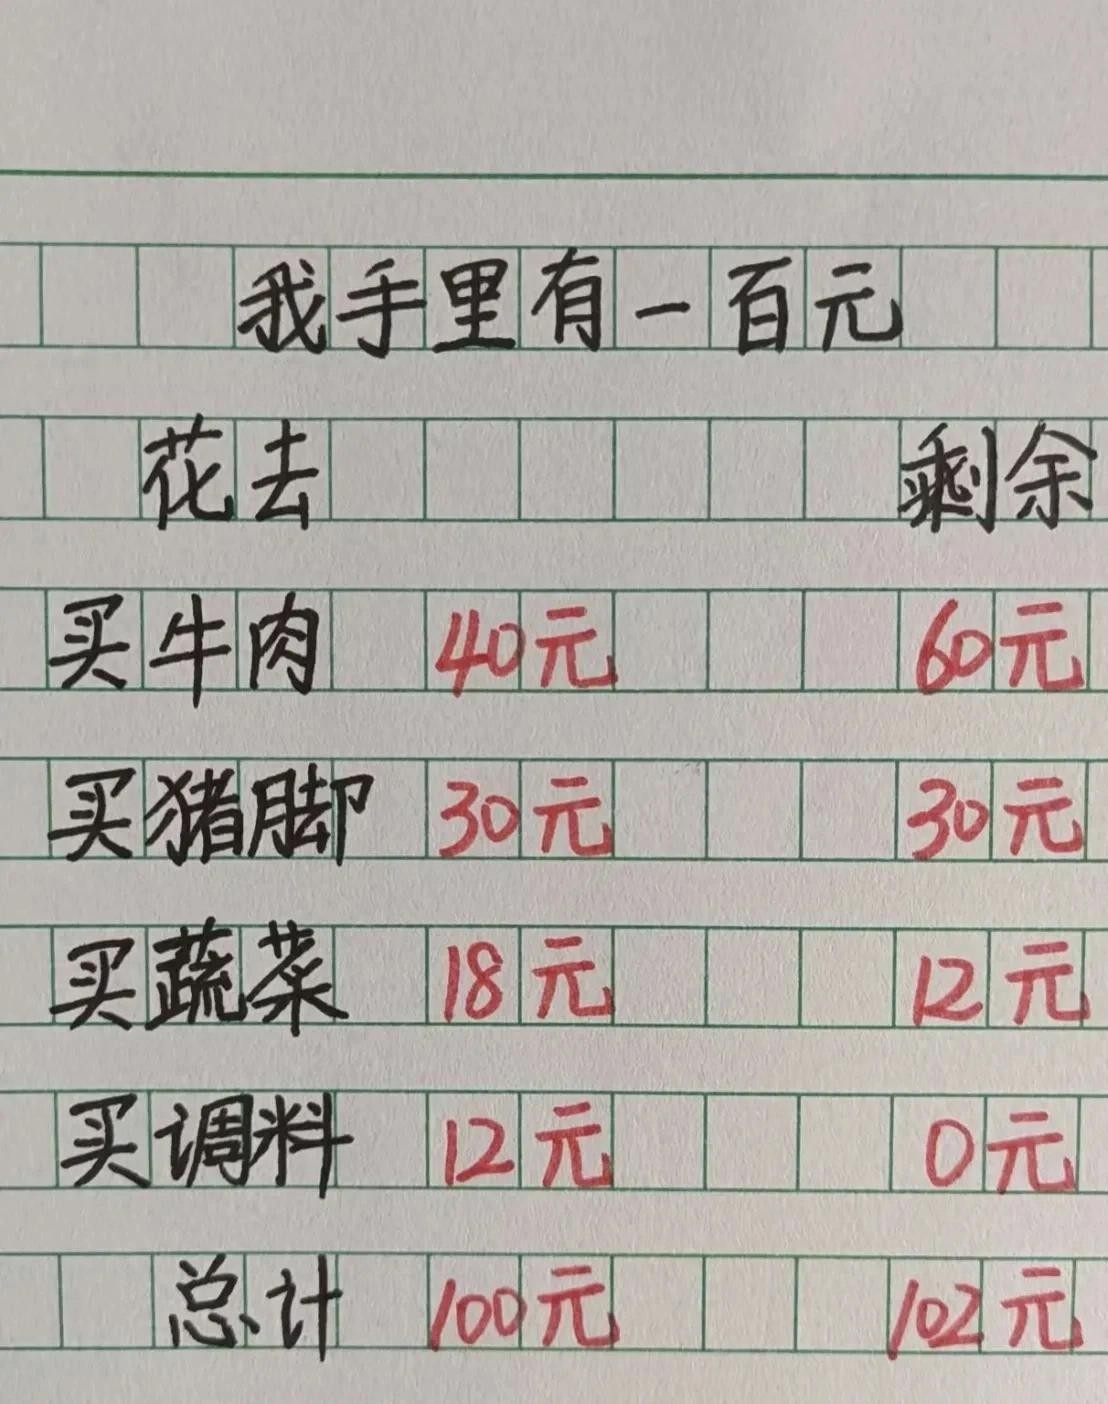 我手里有一百元
花去 剩余
买牛肉 40元 60元
买猪脚 30元 30元
买蔬菜 18元 12元
买调料 12元 0元
总计 100元 102元